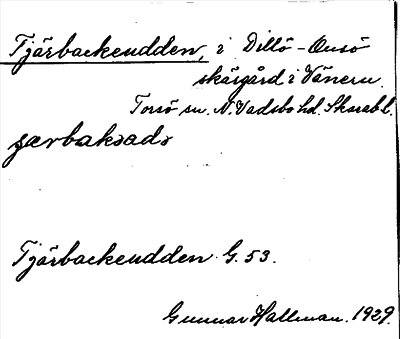 Tjärbackeudden, i Dillö-Onsö
skärgård i Vänern.
Torsö sn. N. Vadsbo hd. Skarab. l.
Tjärbackeudden G. 53.
Gunnar Hallman. 1929.